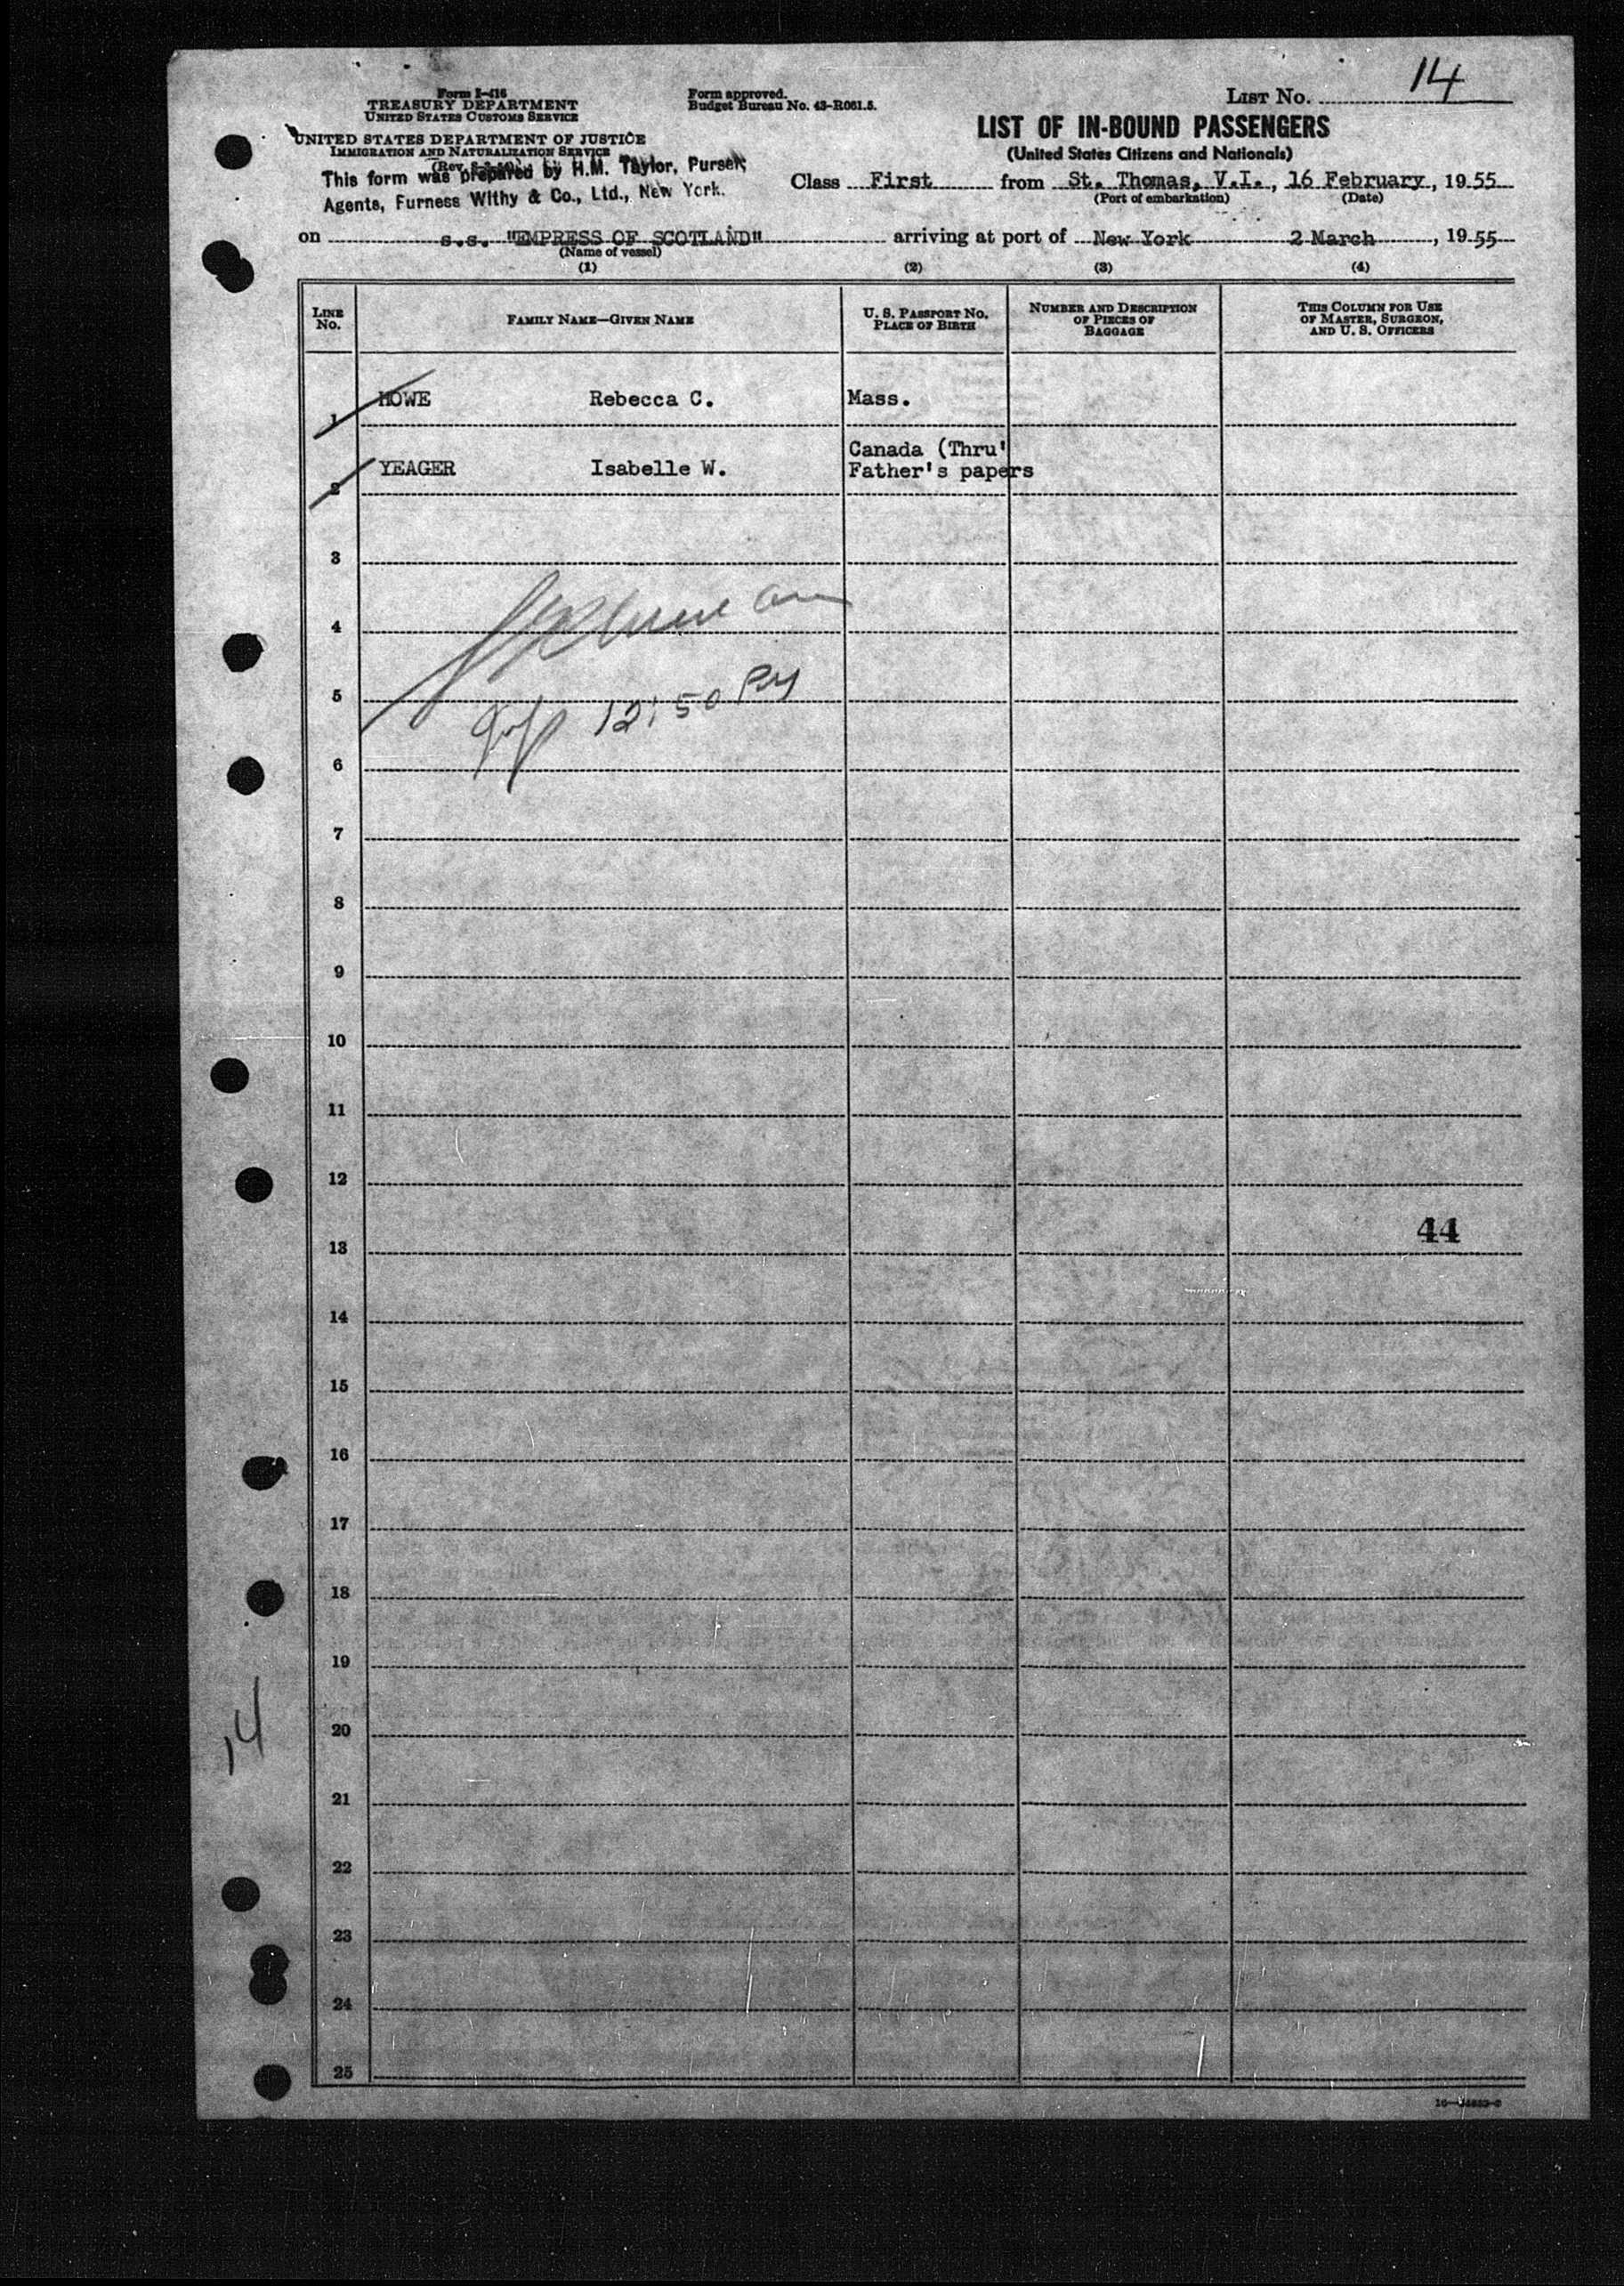 14
Form I-416
TREASURY DEPARTMENT
UNITED STATES CUSTOMS SERVICE
Form approved.
Budget Bureau No. 43-R061.5.
LIST NO.
UNITED STATES DEPARTMENT OF JUSTICE
IMMIGRATION AND NATURALIZATION SERVICE
LIST OF IN-BOUND PASSENGERS
(United States Citizens and Nationals)
This form was prepared by H.M. Taylor, Purser,
Agents, Furness Withy & Co., Ltd., New York.
Class First from St. Thomas, V.I., 16 February, 1955
(Port of embarkation) (Date)
on s.s. "EMPRESS OF SCOTLAND" arriving at port of New York 2 March, 1955
(Name of vessel)
(1) (2) (3) (4)
LINE NO.
FAMILY NAME—GIVEN NAME
U. S. PASSPORT NO.
PLACE OF BIRTH
NUMBER AND DESCRIPTION
OF PIECES OF
BAGGAGE
THIS COLUMN FOR USE
OF MASTER, SURGEON,
AND U. S. OFFICERS
1 HOWE Rebecca C. Mass.
2 YEAGER Isabelle W. Canada (Thru'
Father's papers
3
4
5
12:50
6
7
8
9
10
11
12
13
44
14
15
16
17
18
19
20
14
21
22
23
24
25